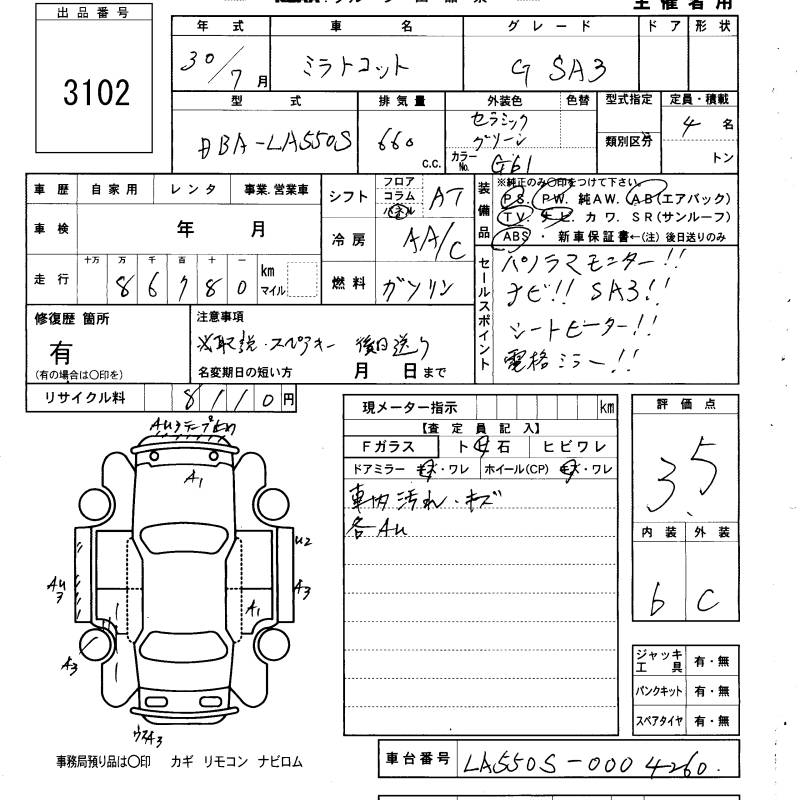 主催者用
出品番号
3102
年式 車名 グレード ドア 形状
30/7月 ミラトコット G SA3
型式 排気量 外装色 色替 型式指定 定員・積載
DBA-LA550S 660 c.c. セラミックグリーン 類別区分 4名
カラーNo. G61 トン
車歴 自家用 レンタ 事業.営業車
シフト フロア コラム パネル AT
装備品 ※純正のみ〇印をつけて下さい。
PS. PW. 純AW. AB(エアバック)
TV. ナビ. カワ. SR(サンルーフ)
ABS ・ 新車保証書←(注) 後日送りのみ
車検 年 月
冷房 AA/C
走行 十万 万 千 百 十 一
8 6 7 8 0 km マイル
燃料 ガソリン
セールスポイント
パノラマモニター!!
ナビ!! SA3!!
シートヒーター!!
電格ミラー!!
修復歴 箇所
有
(有の場合は〇印を)
注意事項
※取説・スペアキー 後日送り
名変期日の短い方 月 日まで
リサイクル料 8110円
現メーター指示 km
【査定員記入】
Fガラス ト石 ヒビワレ
ドアミラー キズ・ワレ ホイール(CP) キズ・ワレ
車内汚れ・キズ
各AU
評価点
3.5
内装 外装
6 C
ジャッキ工具 有・無
パンクキット 有・無
スペアタイヤ 有・無
A1
U2
AU3
A3
A1
A3
事務局預り品は〇印 カギ リモコン ナビロム
車台番号 LA550S-0004260.